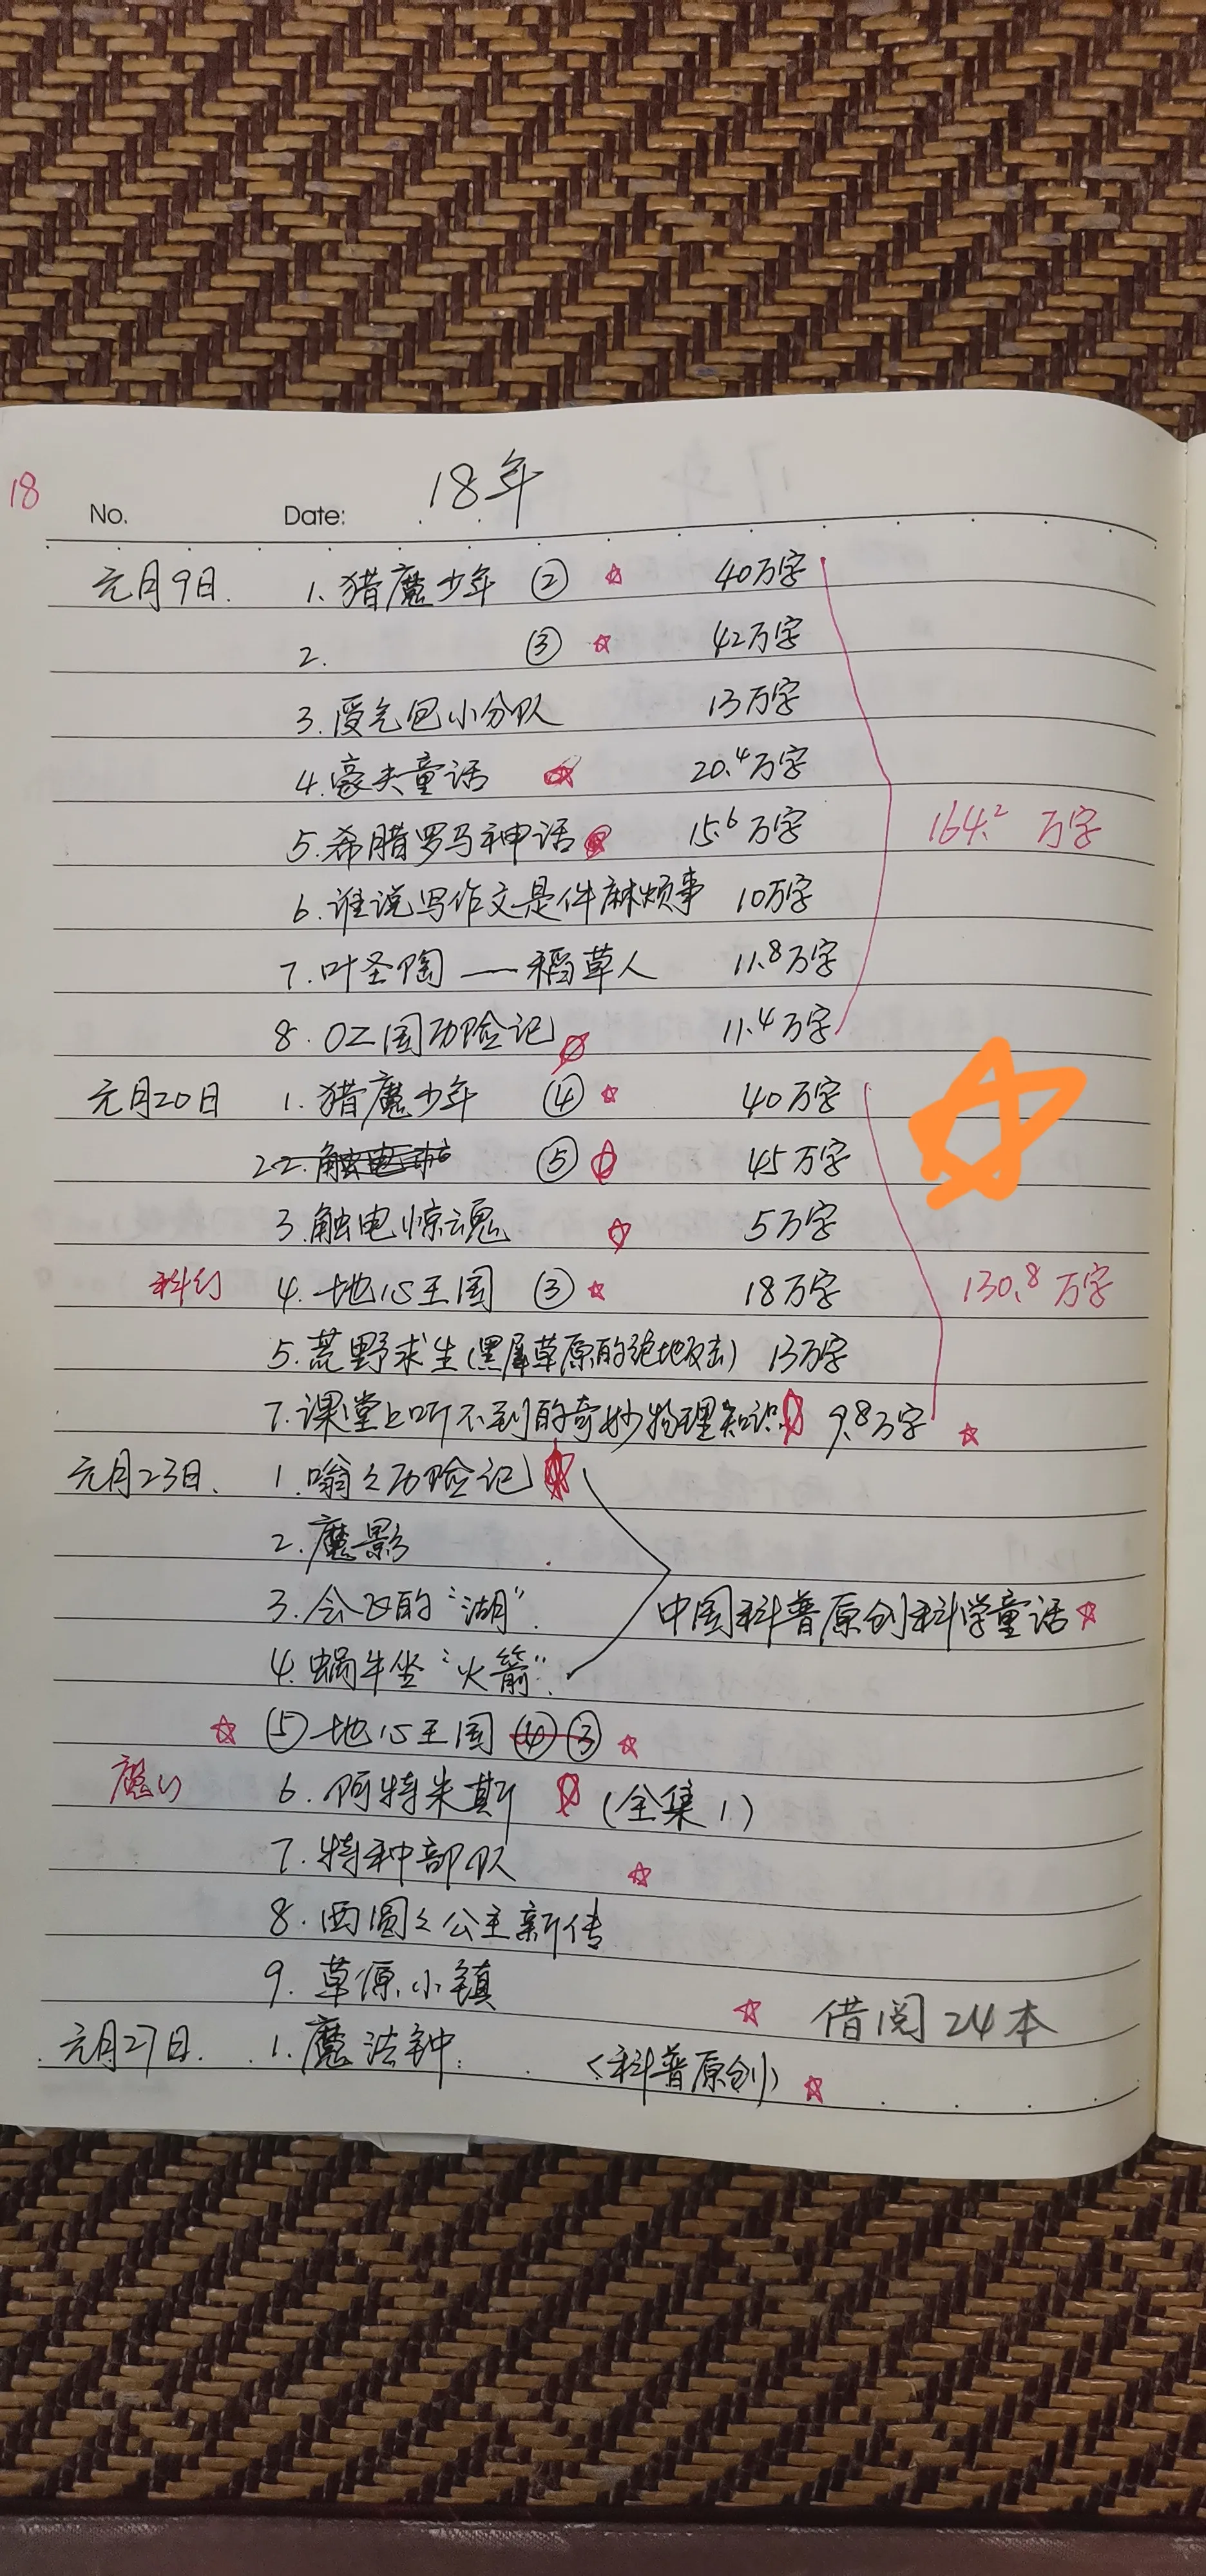 18年
18
No. Date:
元月9日. 1. 猎魔少年 ② 40万字
2. ③ 42万字
3. 受气包小分队 13万字
4. 豪夫童话 20.4万字
5. 希腊罗马神话 15.6万字
164.2万字
6. 谁说写作文是件麻烦事 10万字
7. 叶圣陶——稻草人 11.8万字
8. OZ国历险记 11.4万字
元月20日 1. 猎魔少年 ④ 40万字
2 ⑤ 45万字
3. 触电惊魂 5万字
科幻 4. 地心王国 ③ 18万字
130.8万字
5. 荒野求生(黑犀草原的绝地反击) 13万字
7. 课堂上听不到的奇妙物理知识 9.8万字
元月23日. 1. 嗡嗡历险记
2. 魔影
3. 会飞的“湖”.
中国科普原创科学童话
4. 蜗牛坐“火箭”.
⑤ 地心王国 ④ ③
魔幻 6. 阿特米斯 (全集1)
7. 特种部队
8. 西圆之公主新传
9. 草原小镇
借阅24本
元月27日. 1. 魔法钟. <科普原创>